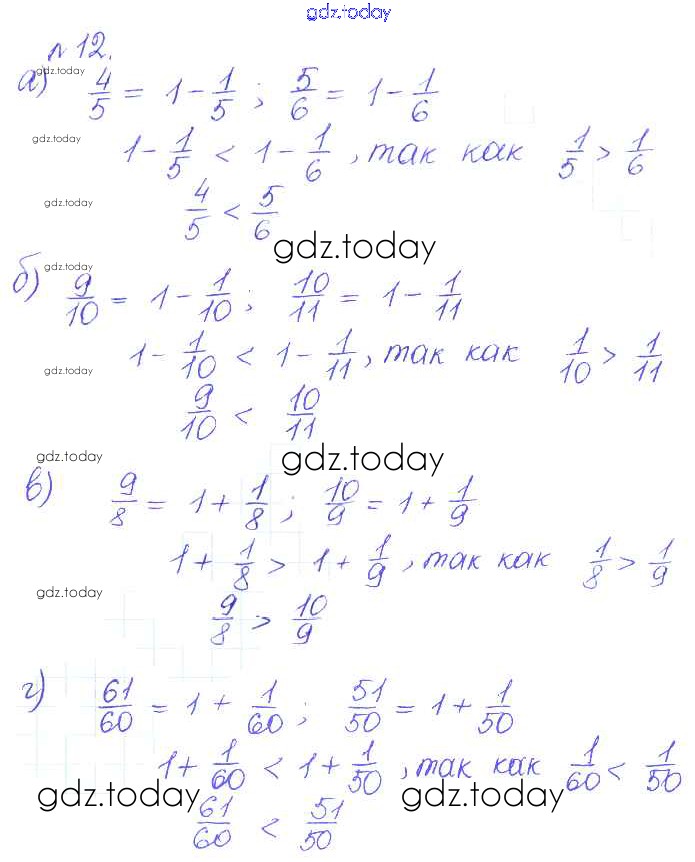 gdz.today
№ 12.
а) 4/5 = 1 - 1/5 ; 5/6 = 1 - 1/6
gdz.today
1 - 1/5 < 1 - 1/6 , так как 1/5 > 1/6
gdz.today
4/5 < 5/6
gdz.today
gdz.today
б) 9/10 = 1 - 1/10 ; 10/11 = 1 - 1/11
gdz.today
1 - 1/10 < 1 - 1/11 , так как 1/10 > 1/11
gdz.today
9/10 < 10/11
gdz.today
gdz.today
в) 9/8 = 1 + 1/8 ; 10/9 = 1 + 1/9
1 + 1/8 > 1 + 1/9 , так как 1/8 > 1/9
gdz.today
9/8 > 10/9
г) 61/60 = 1 + 1/60 ; 51/50 = 1 + 1/50
1 + 1/60 < 1 + 1/50 , так как 1/60 < 1/50
gdz.today
gdz.today
61/60 < 51/50